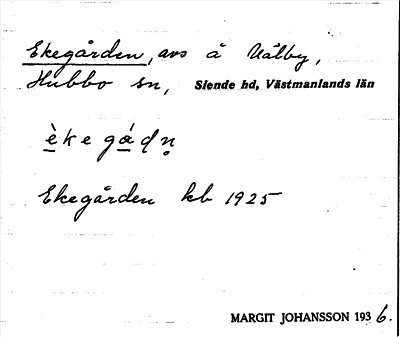 Ekegården, avs å Nälby,
Hubbo sn, Siende hd, Västmanlands län
è̱kegá̱dṇ
Ekegården kb 1925
MARGIT JOHANSSON 1936.